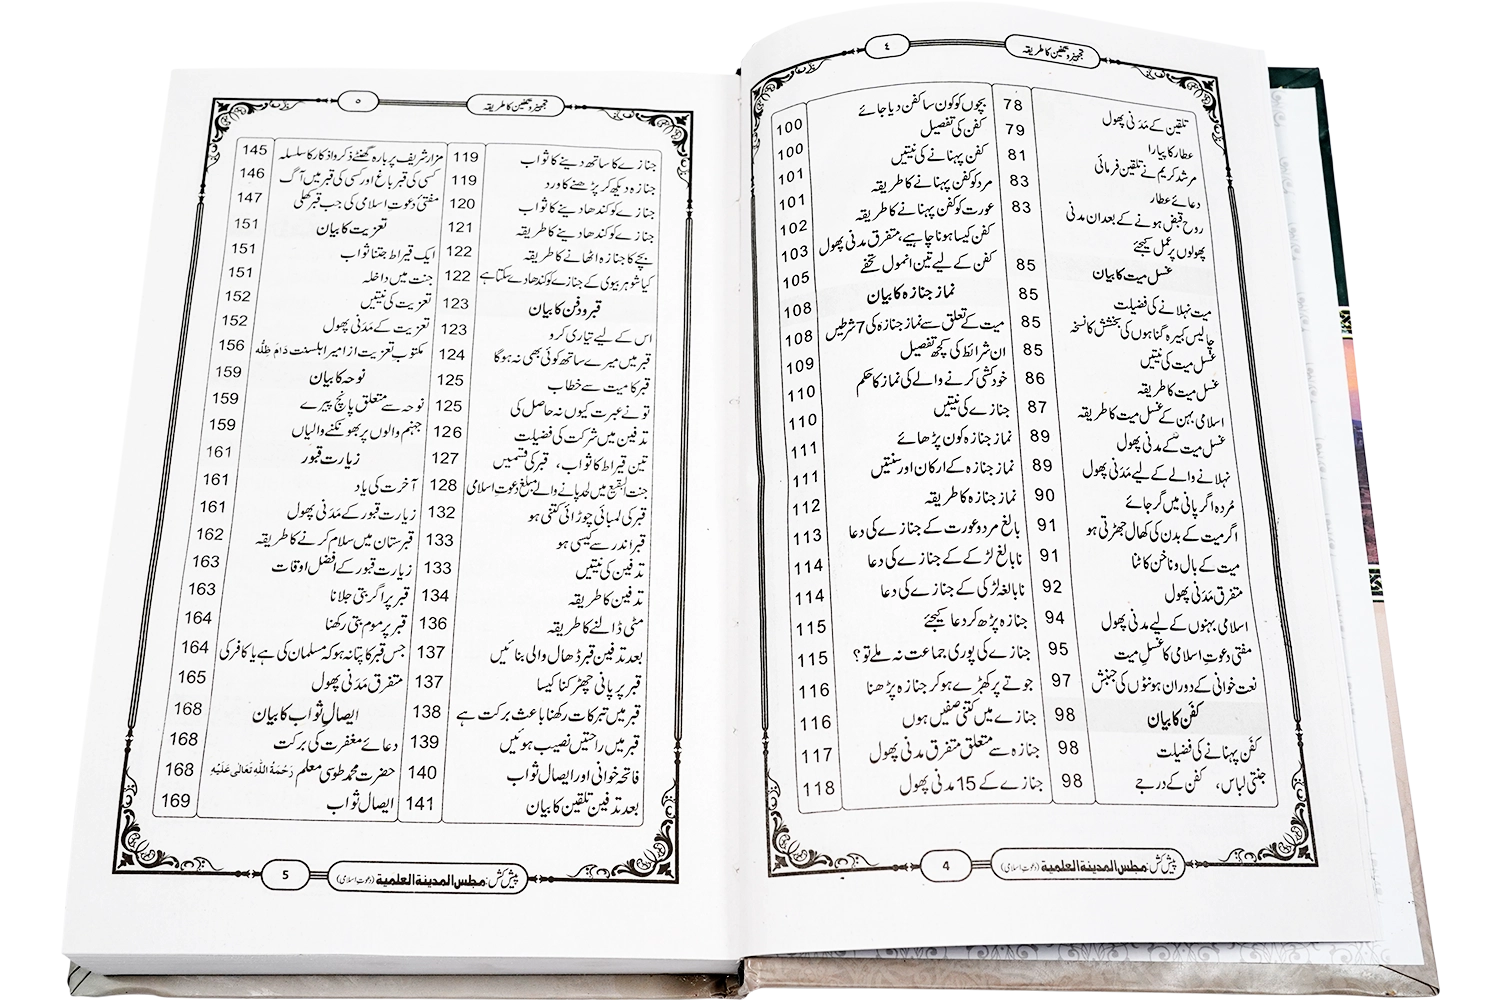 تجہیز و تکفین کا طریقہ ٤
تلقین کے مَدَنی پھول 78
عطار کا پیارا 79
مرشد کریم نے تلقین فرمائی 81
دعائے عطار 83
روح قبض ہونے کے بعد ان مدنی 83
پھولوں پر عمل کیجئے
غسل میت کا بیان 85
میت نہلانے کی فضیلت 85
چالیس کبیرہ گناہوں کی بخشش کا نسخہ 85
غسل میت کی نیتیں 85
غسل میت کا طریقہ 86
اسلامی بہن کے غسل میت کا طریقہ 87
غسل میت کے مدنی پھول 89
نہلانے والے کے لیے مَدَنی پھول 89
مُردہ اگر پانی میں گر جائے 90
اگر میت کے بدن کی کھال جھڑتی ہو 91
میت کے بال و ناخن کاٹنا 91
متفرق مَدَنی پھول 92
اسلامی بہنوں کے لیے مدنی پھول 94
مفتی دعوتِ اسلامی کا غسلِ میت 95
نعت خوانی کے دوران ہونٹوں کی جنبش 97
کفن کا بیان 98
کفن پہنانے کی فضیلت 98
جنتی لباس، کفن کے درجے 98
بچوں کو کون سا کفن دیا جائے 100
کفن کی تفصیل 100
کفن پہنانے کی نیتیں 101
مرد کو کفن پہنانے کا طریقہ 101
عورت کو کفن پہنانے کا طریقہ 102
کفن کیسا ہونا چاہیے، متفرق مدنی پھول 103
کفن کے لیے تین انمول تحفے 105
نماز جنازہ کا بیان 108
میت کے تعلق سے نماز جنازہ کی 7 شرطیں 108
ان شرائط کی کچھ تفصیل 109
خودکشی کرنے والے کی نماز کا حکم 110
جنازے کی نیتیں 110
نماز جنازہ کون پڑھائے 111
نماز جنازہ کے ارکان اور سنتیں 111
نماز جنازہ کا طریقہ 112
بالغ مرد و عورت کے جنازے کی دعا 113
نابالغ لڑکے کے جنازے کی دعا 114
نابالغہ لڑکی کے جنازے کی دعا 114
جنازہ پڑھ کر دعا کیجئے 115
جنازے کی پوری جماعت نہ ملے تو؟ 115
جوتے پر کھڑے ہو کر جنازہ پڑھنا 116
جنازے میں کتنی صفیں ہوں 116
جنازہ سے متعلق متفرق مدنی پھول 117
جنازے کے 15 مدنی پھول 118
پیش کش: مجلس المدینة العلمیة (دعوتِ اسلامی) 4
تجہیز و تکفین کا طریقہ ٥
جنازے کا ساتھ دینے کا ثواب 119
جنازہ دیکھ کر پڑھنے کا ورد 119
جنازے کو کندھا دینے کا ثواب 120
جنازے کو کندھا دینے کا طریقہ 121
بچے کا جنازہ اٹھانے کا طریقہ 122
کیا شوہر بیوی کے جنازے کو کندھا دے سکتا ہے 122
قبر و دفن کا بیان 123
اس کے لیے تیاری کرو 123
قبر میں میرے ساتھ کوئی بھی نہ ہوگا 124
قبر کا میت سے خطاب 125
تو نے عبرت کیوں نہ حاصل کی 125
تدفین میں شرکت کی فضیلت 126
تین قیراط کا ثواب، قبر کی قسمیں 127
جنت البقیع میں لحد پانے والے مبلغ دعوتِ اسلامی 128
قبر کی لمبائی چوڑائی کتنی ہو 132
قبر اندر سے کیسی ہو 133
تدفین کی نیتیں 133
تدفین کا طریقہ 134
مٹی ڈالنے کا طریقہ 136
بعد تدفین قبر ڈھال والی بنائیں 137
قبر پر پانی چھڑکنا کیسا 137
قبر میں تبرکات رکھنا باعث برکت ہے 138
قبر میں راحتیں نصیب ہوئیں 139
فاتحہ خوانی اور ایصال ثواب 140
بعد تدفین تلقین کا بیان 141
مزار شریف پر بارہ گھنٹے ذکر و اذکار کا سلسلہ 145
کسی کی قبر باغ اور کسی کی قبر میں آگ 146
مفتی دعوت اسلامی کی جب قبر کھلی 147
تعزیت کا بیان 151
ایک قیراط جتنا ثواب 151
جنت میں داخلہ 151
تعزیت کی نیتیں 152
تعزیت کے مَدَنی پھول 152
مکتوب تعزیت از امیر اہلسنت دَامَ ظِلُّه 156
نوحہ کا بیان 159
نوحہ سے متعلق پانچ پیرے 159
جہنم والوں پر بھونکنے والیاں 159
زیارت قبور 161
آخرت کی یاد 161
زیارت قبور کے مَدَنی پھول 161
قبرستان میں سلام کرنے کا طریقہ 162
زیارت قبور کے افضل اوقات 163
قبر پر اگر بتی جلانا 163
قبر پر موم بتی رکھنا 164
جس قبر کا پتا نہ ہو کہ مسلمان کی ہے یا کافر کی 164
متفرق مَدَنی پھول 165
ایصالِ ثواب کا بیان 168
دعائے مغفرت کی برکت 168
حضرت محمد طوسی معلم رَحْمَةُ اللّٰهِ تَعَالٰی عَلَيْه 168
ایصال ثواب 169
پیش کش: مجلس المدینة العلمیة (دعوتِ اسلامی) 5